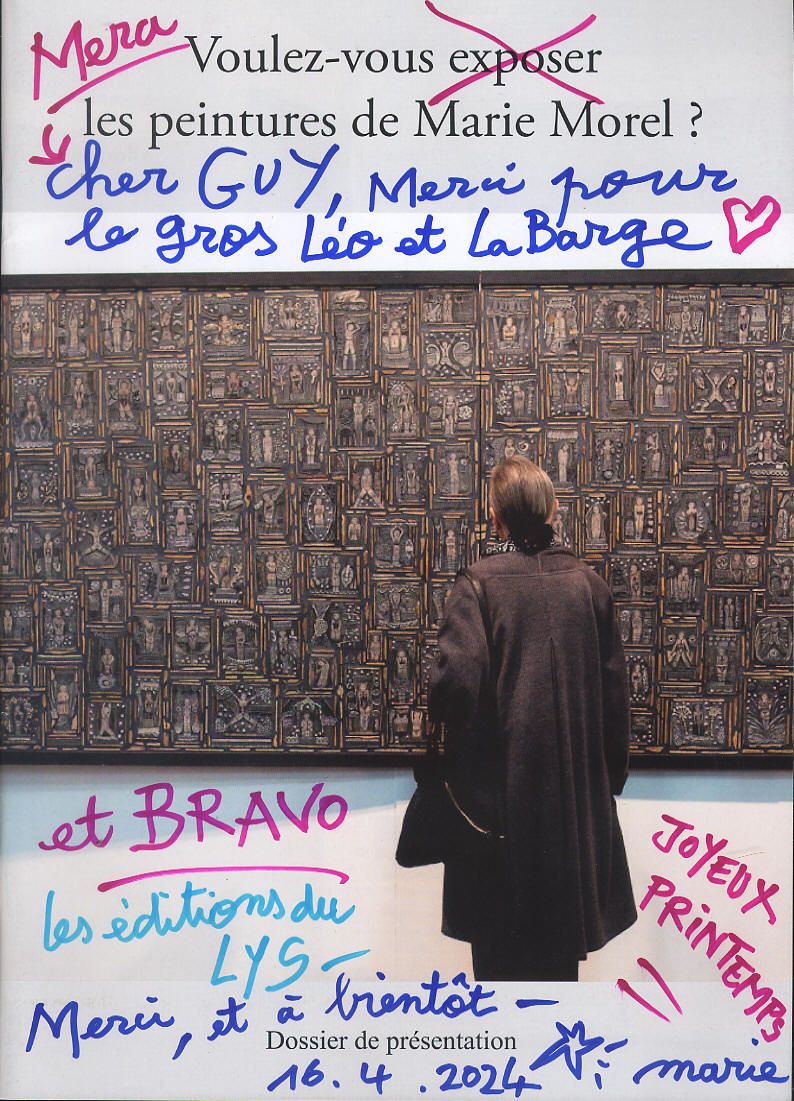 Mera
Voulez-vous exposer
les peintures de Marie Morel ?
cher GUY, Merci pour
le gros Léo et La Barge
et BRAVO
les éditions du
LYS -
JOYEUX
PRINTEMPS
!!
Merci, et à bientôt -
Dossier de présentation
16.4.2024
marie